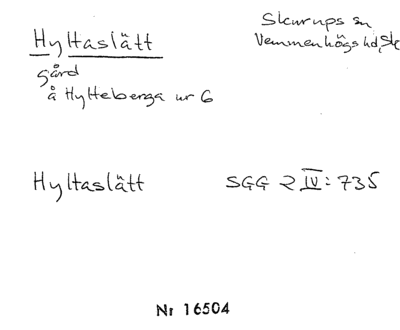 Hyltaslätt
Skurups sn
Vemmenhögs hd, Sk
gård
å Hylteberga nr 6
Hyltaslätt
SGG 2 IV: 735
Nr 16504